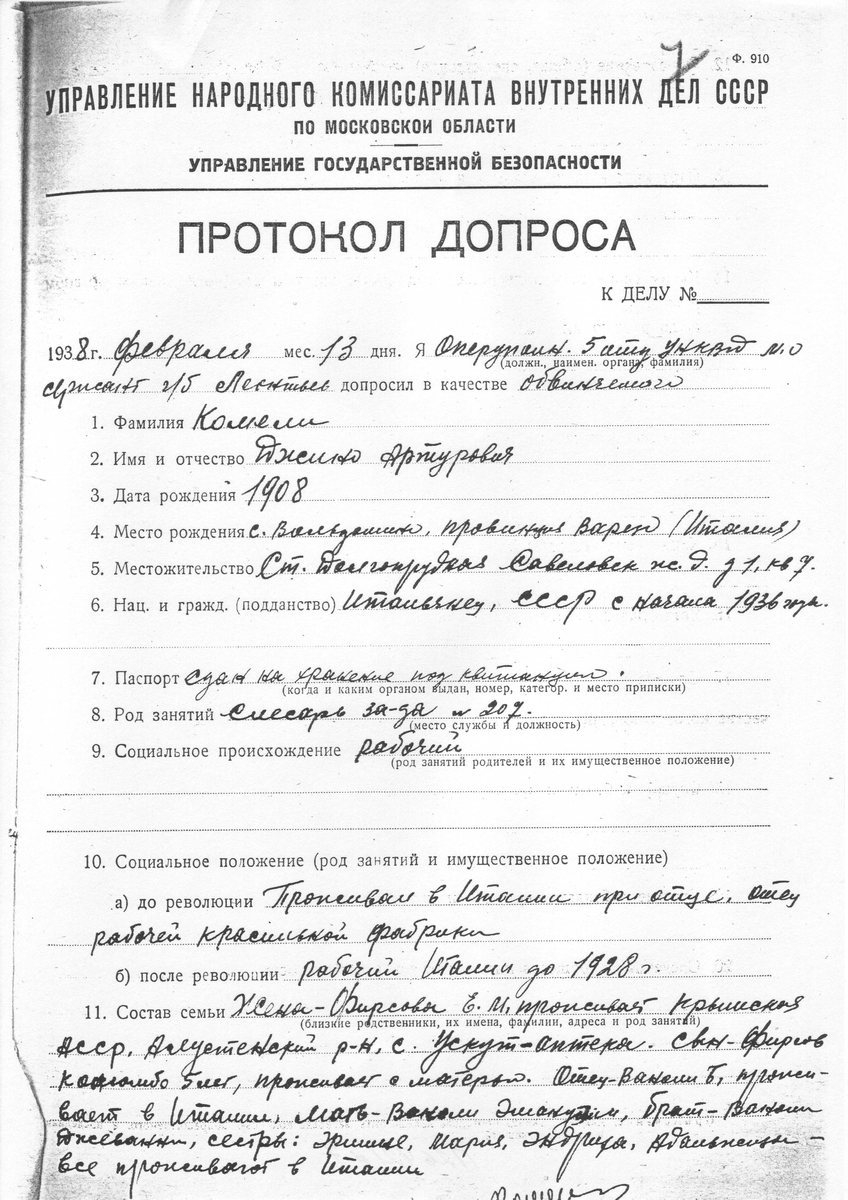 7
Ф. 910
УПРАВЛЕНИЕ НАРОДНОГО КОМИССАРИАТА ВНУТРЕННИХ ДЕЛ СССР
ПО МОСКОВСКОЙ ОБЛАСТИ
УПРАВЛЕНИЕ ГОСУДАРСТВЕННОЙ БЕЗОПАСНОСТИ
ПРОТОКОЛ ДОПРОСА
К ДЕЛУ №
1938 г. февраля мес. 13 дня. Я Оперуполн. 5 отд УНКВД М.О
(должн., наимен. органа, фамилия)
сержант г/б Леонтьев допросил в качестве обвиняемого
1. Фамилия Комели
2. Имя и отчество Джино Артурович
3. Дата рождения 1908
4. Место рождения с. провинция Варез (Италия)
5. Местожительство Ст. Долгопрудная Савеловск ж. д. д 1, кв 7.
6. Нац. и гражд. (подданство) Итальянец, СССР с начала 1936 года.
7. Паспорт сдан на хранение под квитанцию.
(когда и каким органом выдан, номер, категор. и место приписки)
8. Род занятий слесарь за-да № 207.
(место службы и должность)
9. Социальное происхождение рабочий
(род занятий родителей и их имущественное положение)
10. Социальное положение (род занятий и имущественное положение)
а) до революции Проживал в Италии при отце, отец
рабочей красильной фабрики
б) после революции рабочий Италии до 1928 г.
11. Состав семьи Жена-Фирсова Е. М, проживает Крымская
(близкие родственники, их имена, фамилии, адреса и род занятий)
АССР, р-н, с. Ускут-аптека. Сын-Фирсов
5 лет, проживает с матерью. Отец- Б, прожи-
вает в Италии, Мать- брат-
сестры: Мария,
все проживают в Италии